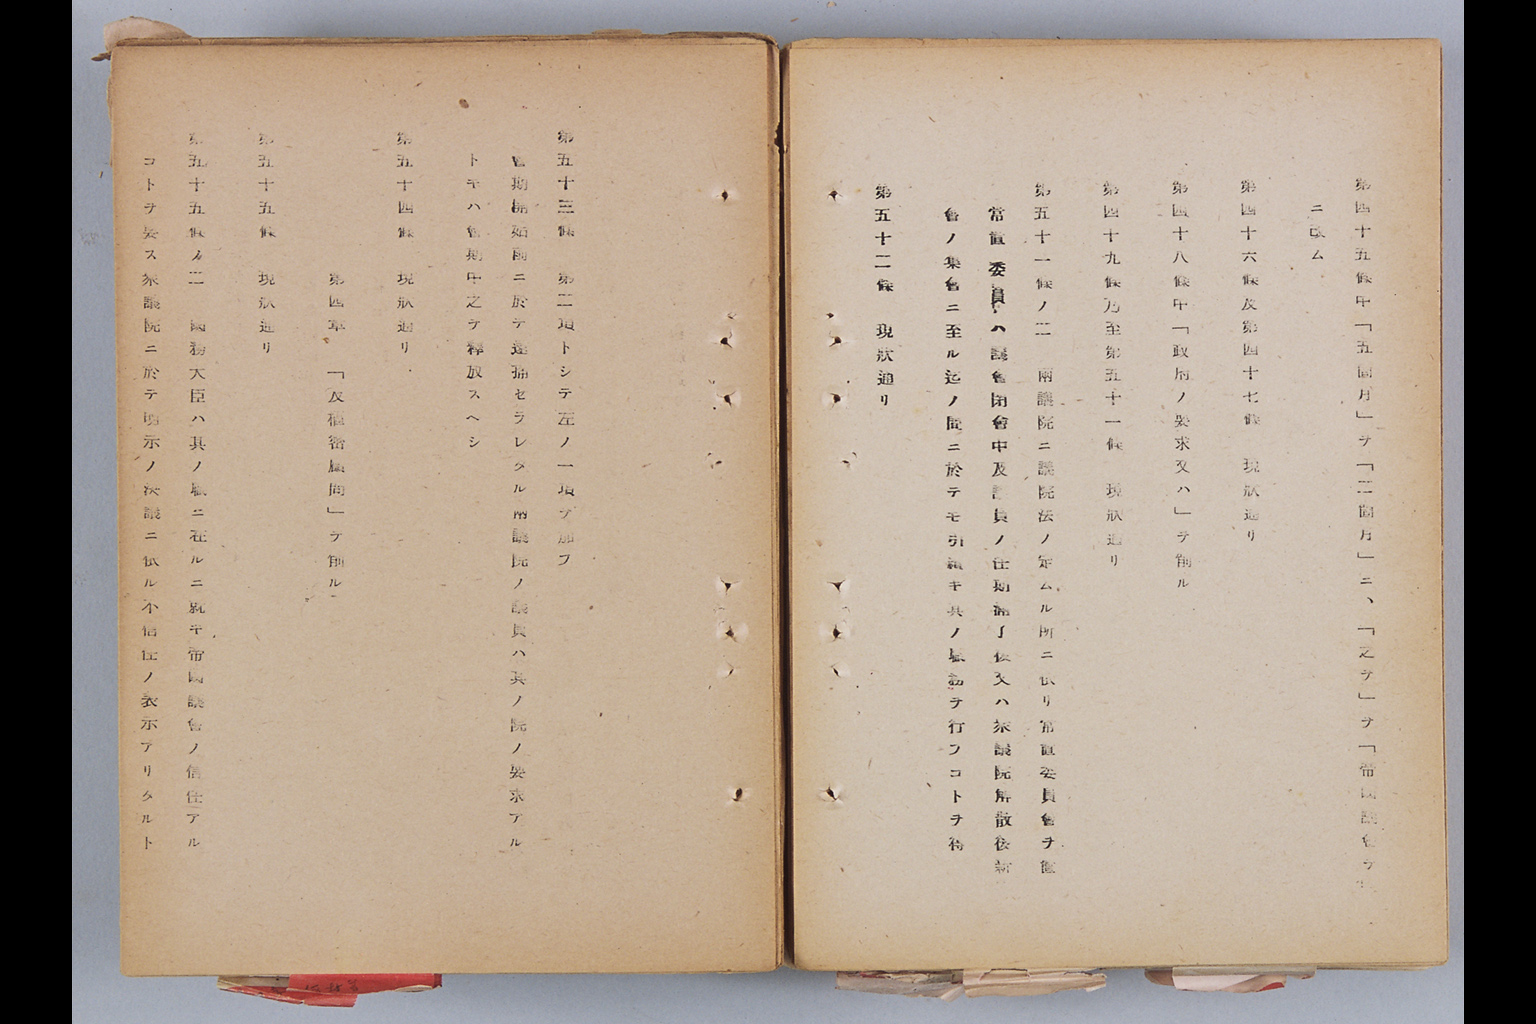 第四十五條中「五箇月」ヲ「三箇月」ニ、「之ヲ」ヲ「帝國議會ヲ
ニ改ム
第四十六條及第四十七條　現狀通リ
第四十八條中「政府ノ要求又ハ」ヲ削ル
第四十九條乃至第五十一條　現狀通リ
第五十一條ノ二　兩議院ニ議院法ノ定ムル所ニ依リ常置委員會ヲ置
常置委員ハ議會閉會中及議員ノ任期滿了後又ハ衆議院解散後新
會ノ集會ニ至ル迄ノ間ニ於テモ引續キ其ノ職務ヲ行フコトヲ得
第五十二條　現狀通リ
第五十三條　第二項トシテ左ノ一項ヲ加フ
會期開始前ニ於テ逮捕セラレタル兩議院ノ議員ハ其ノ院ノ要求アル
トキハ會期中之ヲ釋放スヘシ
第五十四條　現狀通リ
第四章　「及樞密顧問」ヲ削ル
第五十五條　現狀通リ
第五十五條ノ二　國務大臣ハ其ノ職ニ在ルニ就キ帝國議會ノ信任アル
コトヲ要ス衆議院ニ於テ明示ノ決議ニ依ル不信任ノ表示アリタルト